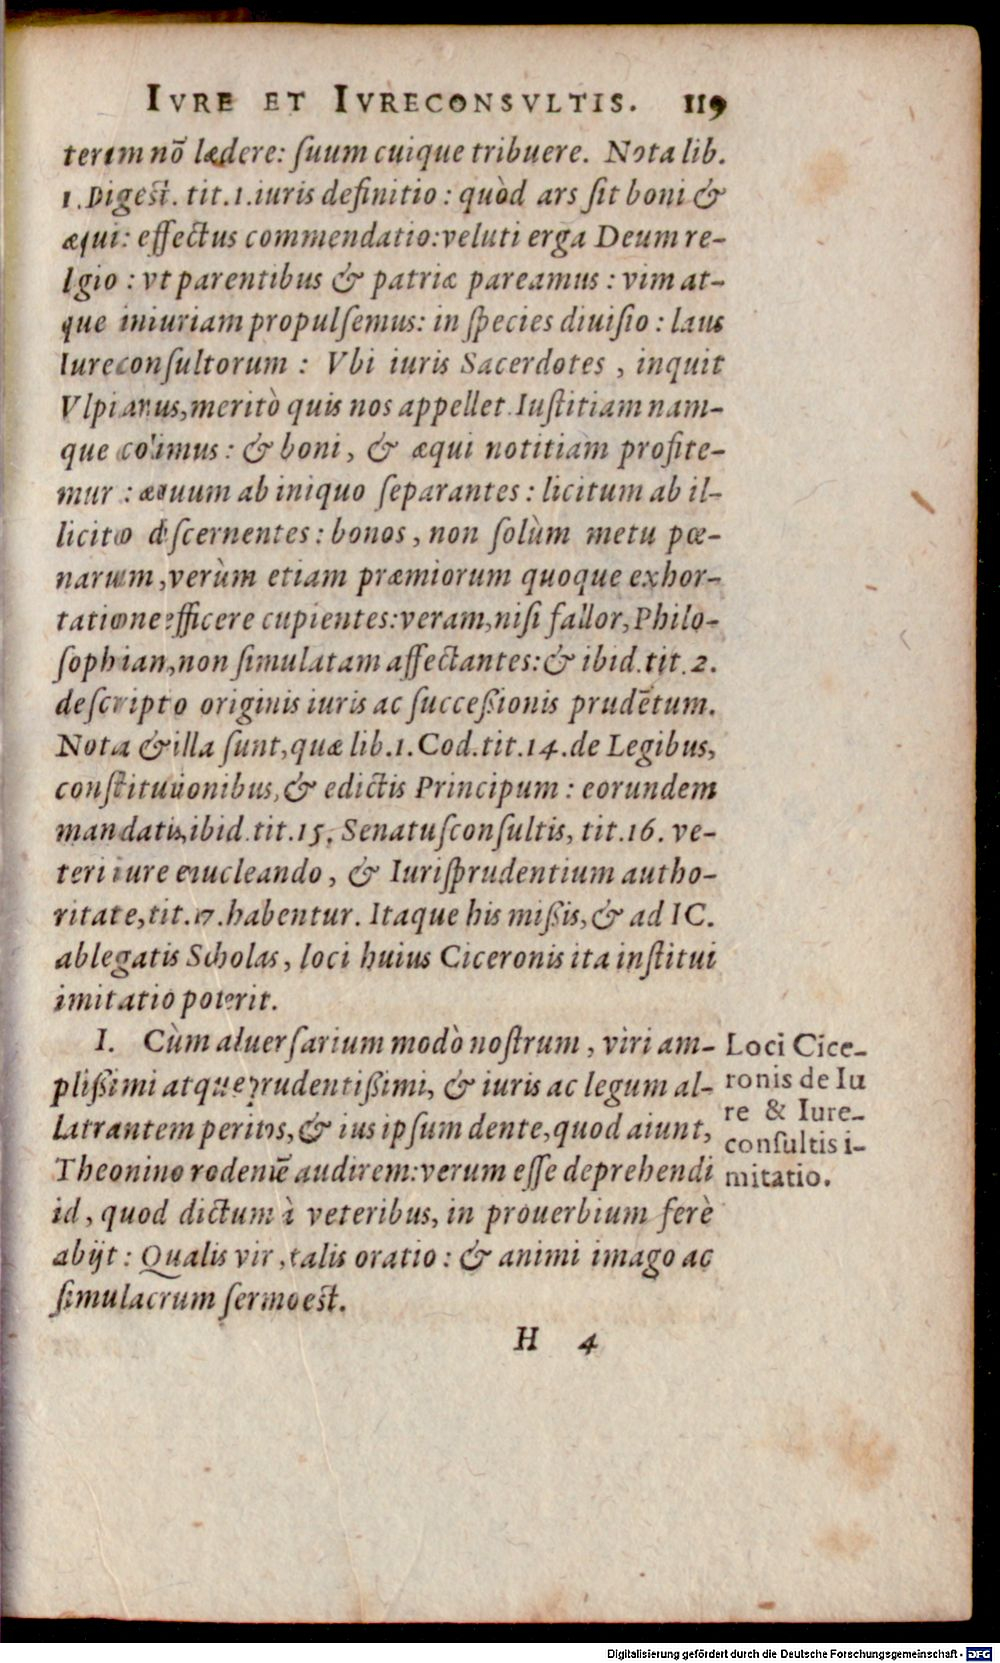 IVRE ET IVRECONSVLTIS. 119
terum nō lædere: ſuum cuique tribuere. Nota lib.
1. Digeſt. tit. 1. iuris definitio: quòd ars ſit boni &
æqui: effectus commendatio: veluti erga Deum re-
lgio: vt parentibus & patriæ pareamus: vim at-
que iniuriam propulſemus: in ſpecies diuiſio: laus
Iureconſultorum: Vbi iuris Sacerdotes, inquit
Vlpianus, meritò quis nos appellet. Iuſtitiam nam-
que colimus: & boni, & æqui notitiam profite-
mur: æquum ab iniquo ſeparantes: licitum ab il-
licito diſcernentes: bonos, non ſolùm metu pœ-
narum, verùm etiam præmiorum quoque exhor-
tatione efficere cupientes: veram, niſi fallor, Philo-
ſophian, non ſimulatam affectantes: & ibid. tit. 2.
deſcripto originis iuris ac ſucceßionis prudētum.
Nota & illa ſunt, quæ lib. 1. Cod. tit. 14. de Legibus,
conſtitutionibus, & edictis Principum: eorundem
mandatis, ibid. tit. 15. Senatuſconſultis, tit. 16. ve-
teri iure enucleando, & Iuriſprudentium autho-
ritate, tit. 17. habentur. Itaque his mißis, & ad IC.
ablegatis Scholas, loci huius Ciceronis ita inſtitui
imitatio poterit.
I. Cùm aduerſarium modò noſtrum, viri am-
plißimi atque prudentißimi, & iuris ac legum al-
latrantem peritos, & ius ipſum dente, quod aiunt,
Theonino rodentē audirem: verum eſſe deprehendi
id, quod dictum à veteribus, in prouerbium ferè
abijt: Qualis vir, talis oratio: & animi imago ac
ſimulacrum ſermo est.
Loci Cice-
ronis de Iu
re & Iure-
conſultis i-
mitatio.
H 4
Digitalisierung gefördert durch die Deutsche Forschungsgemeinschaft - DFG